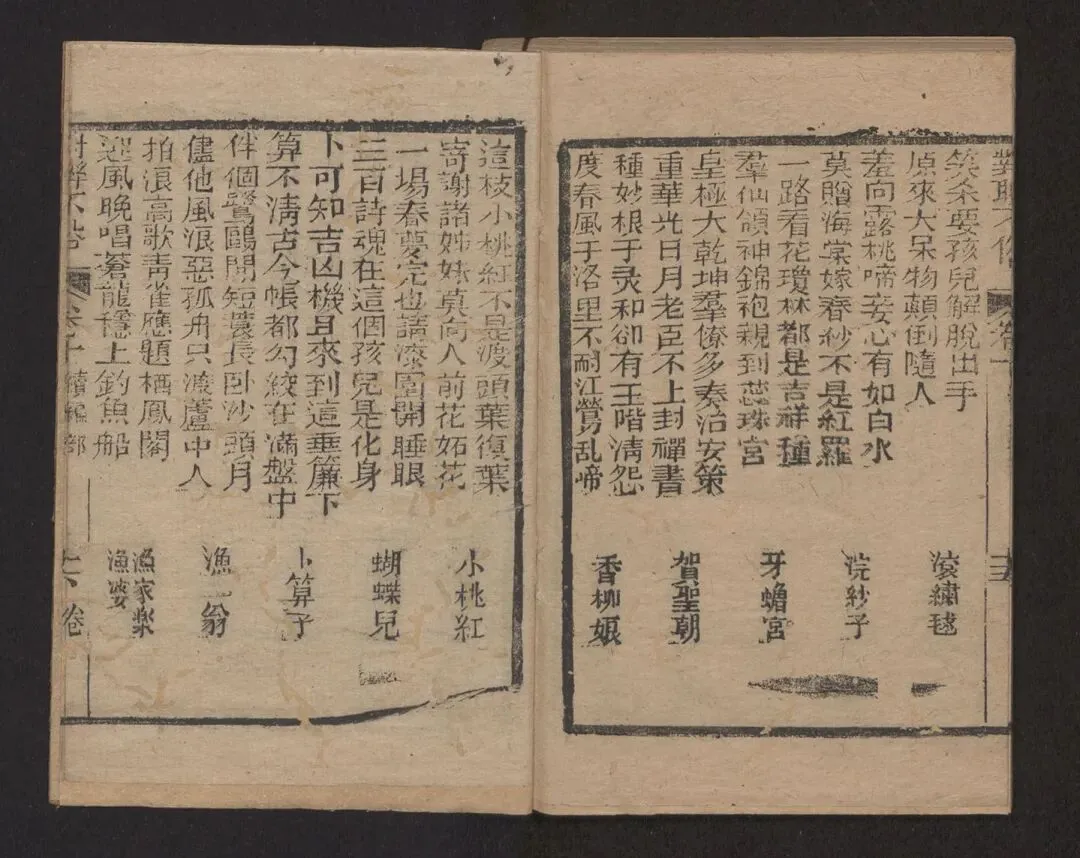 笑杀耍孩兒解脫出手
原來大呆物顛倒隨人
滾繡毬
羞向露桃啼妾心有如白水
莫贈海棠嫁春紗不是紅羅
浣紗子
一路看花瓊林都是吉祥種
羣仙領袖錦袍親到蕊珠宮
牙蟾宮
皇極大乾坤羣僚多奏治安策
重華光日月老臣不上封禪書
賀聖朝
種妙根于灵和卻有王階淸怨
度春風于洛里不耐江鶯乱啼
香柳娘
這枝小桃紅不是渡頭葉復葉
寄謝諸姊妹莫向人前花妬花
小桃紅
一場春夢完也請漆園開睡眼
三百詩魂在這個孩兒是化身
蝴蝶兒
卜可知吉凶機且來到這垂簾下
算不淸古今帳都勾絞在滿盤中
卜算子
伴個鷺鷗閒短蓑長卧沙頭月
儘他風浪惡孤舟只渡蘆中人
漁翁
拍浪高歌靑雀應題栖鳳閣
迎風晚唱蒼龍穩上釣魚船
漁家樂
漁婆
卷十 續編部
下卷